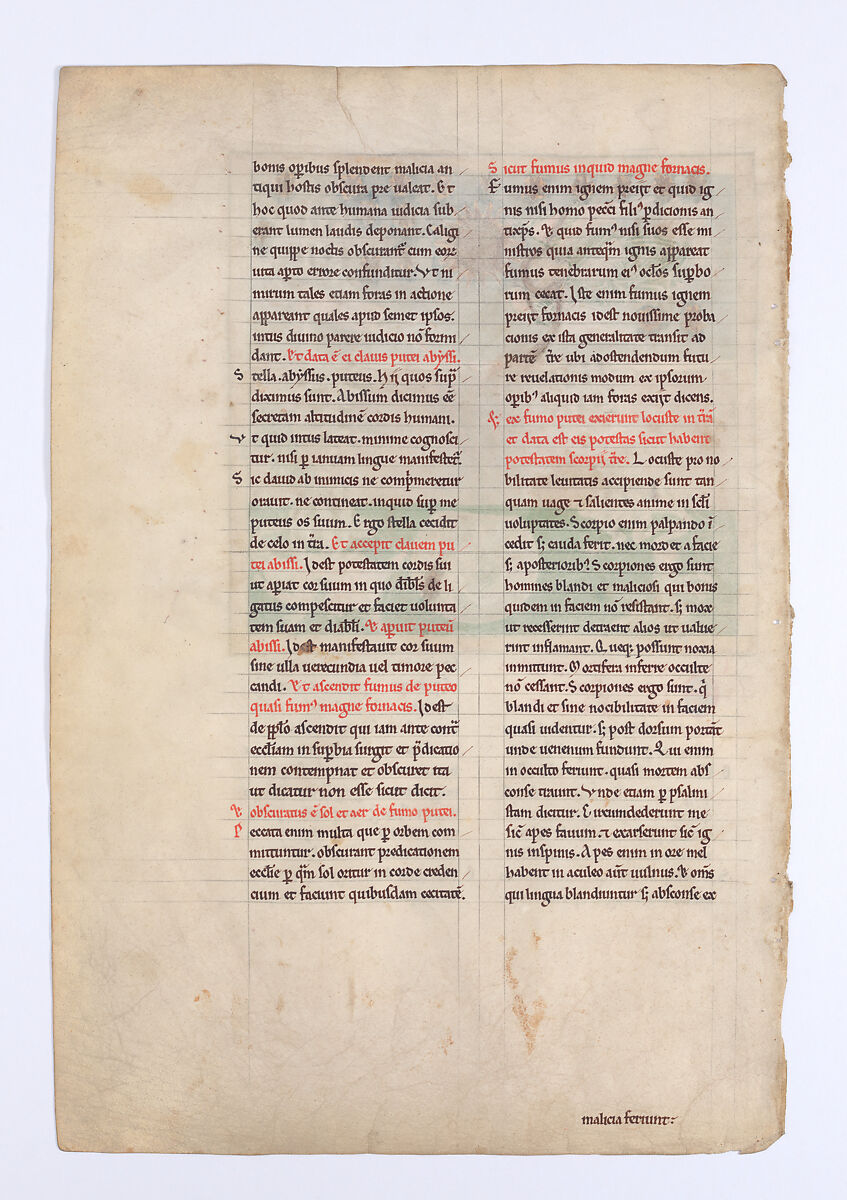 bonis op̅ibus splendent malicia an
tiqui hostis obscura pre ualeat. Et
hoc quod ante humana iudicia sub
erant lumen laudis deponant. Caligi
ne quippe noctis obscurant᷑ cum eorꝝ
uita ap̅to errore confunditur. Vt ni
mirum tales etiam foras in actione
appareant quales apud semet ipsos.
intus diuino parere iudicio no̅ formi
dant. Et data e̅ ei clauis putei abyssi.
Stella. abyssus. puteus. Hij quos sup̅
diximus sunt. Abissum dicimus ee̅
secretam altitudine̅ cordis humani.
Vt quid intus lateat. minime cognosci
tur. nisi ꝑ ianuam lingue manifestet᷑.
Sic dauid ab inimicis ne comp̅meretur
orauit. ne contineat. inquid sup̅ me
puteus os suum. Ergo stella cecidit
de celo in t̅ra. Et accepit clauem pu
tei abissi. Idest potestatem cordis sui
ut ap̅iat cor suum in quo diabl̅s de li
gatus compescitur et faciet uolunta
tem suam et diabl̅i. Et apuit puteu̅
abissi. Idest manifestauit cor suum
sine ulla uerecundia uel timore pec
candi. Et ascendit fumus de puteo
quasi fumꝰ magne fornacis. Idest
de pp̅lo ascendit qui iam ante cont᷑
eccl̅iam in suꝑbia surgit et p̅dicatio
nem contempnat et obscuret ita
ut dicatur non esse sicut dicit.
Et obscuratus e̅ sol et aer de fumo putei.
Peccata enim multa que ꝑ orbem com
mittuntur. obscurant predicationem
eccl̅ie ꝑ qua̅m sol oritur in corde creden
cium et faciunt quibusdam cecitate̅.
Sicut fumus inquid magne fornacis.
Fumus enim ignem preijt et quid ig
nis nisi homo pecc̅i filiꝰ ꝑdicionis an
tixp̅s. Et quid fumꝰ nisi suos esse mi
nistros quia anteq̅m ignis appareat
fumus tenebrarum eiꝰ oc̅los suꝑbo
rum cecat. Iste enim fumus ignem
preijt fornacis idest nouissime proba
cionis ex ista generalitate transit ad
parte̅ t̅re ubi adostendendum futu
re reuelationis modum ex ipsorum
op̅ibꝰ aliquid iam foras exijt dicens.
Et ex fumo putei exierunt locuste in t̅ra̅
et data est eis potestas sicut habent
potestatem scorpij t̅re. Locuste pro no
bilitate leuitatis accipiende sunt tan
quam uage ⁊ salientes anime in sc̅li
uoluptates. Scorpio enim palpando i̅
cedit sꝫ cauda ferit. nec mordet a facie
sꝫ aposterioribꝰ. Scorpiones ergo sunt
homines blandi et maliciosi qui bonis
quidem in faciem no̅ resistant. sꝫ mox
ut recesserint detraent alios ut ualue
rint inflamant. Queqꝫ possunt noxia
inmittunt. Mortifera inferre occulte
no̅ cessant. Scorpiones ergo sunt. q̅
blandi et sine nocibilitate in faciem
quasi uidentur. sꝫ post dorsum porta̅t
unde uenenum fundunt. Qui enim
in occulto feriunt. quasi mortem abs
conse tirunt. Vnde etiam ꝑ psalmi
stam dicitur. Circumdederunt me
sic̅ apes fauum ⁊ exarserunt sic̅ ig
nis inspinis. Apes enim in ore mel
habent in aculeo au̅t uulnus. Et om̅s
qui lingua blandiuntur sꝫ absconse ex
malicia feriunt: